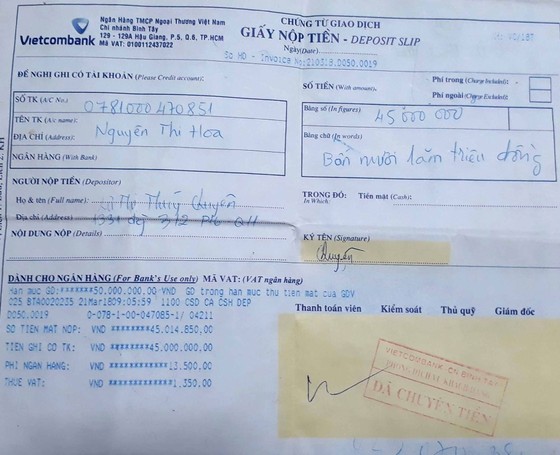 Vietcombank
Ngân Hàng TMCP Ngoại Thương Việt Nam
Chi nhánh Bình Tây
129 - 129A Hậu Giang, P.5, Q.6, TP.HCM
Mã VAT: 0100112437022
CHỨNG TỪ GIAO DỊCH
GIẤY NỘP TIỀN - DEPOSIT SLIP
Ngày(Date)
So HD - Invoice No:210318.0050.0019
ĐỀ NGHỊ GHI CÓ TÀI KHOẢN (Please Credit account):
SỐ TK (A/C No.) 0781000470851
TÊN TK (A/c name): Nguyễn Thị Hoa
ĐỊA CHỈ (Address):
NGÂN HÀNG (With Bank)
SỐ TIỀN (With amount)
Phí trong
Phí ngoài
Bằng số (In figures) 45 000 000
Bằng chữ (In words)
Bốn mươi lăm triệu đồng
NGƯỜI NỘP TIỀN (Depositor)
Họ & tên (Full name): Thúy Quyên
Địa chỉ (Address)
NỘI DUNG NỘP (Details)
TRONG ĐÓ: Tiền mặt (Cash):
In Which:
KÝ TÊN (Signature)
Quyên
DÀNH CHO NGÂN HÀNG (For Bank's Use only) MÃ VAT: (VAT ngân hàng)
Han muc GD:*******50.000.000,00-VND GD trong han muc thu tien mat cua GDV
025 BTA0020235 21Mar1809:05:59 1100 CSD CA CSH DEP
D050.0019 0-078-1-00-047085-1/ 04211
SO TIEN MAT NOP: VND **********45.014.850
TIEN GHI CO TK: VND **********45.000.000
PHI NGAN HANG: VND *************13.500
THUE VAT: VND **************1.350
Thanh toán viên Kiểm soát Thủ quỹ Giám đốc
VIETCOMBANK CN BINH TAY
ĐÃ CHUYỂN TIỀN